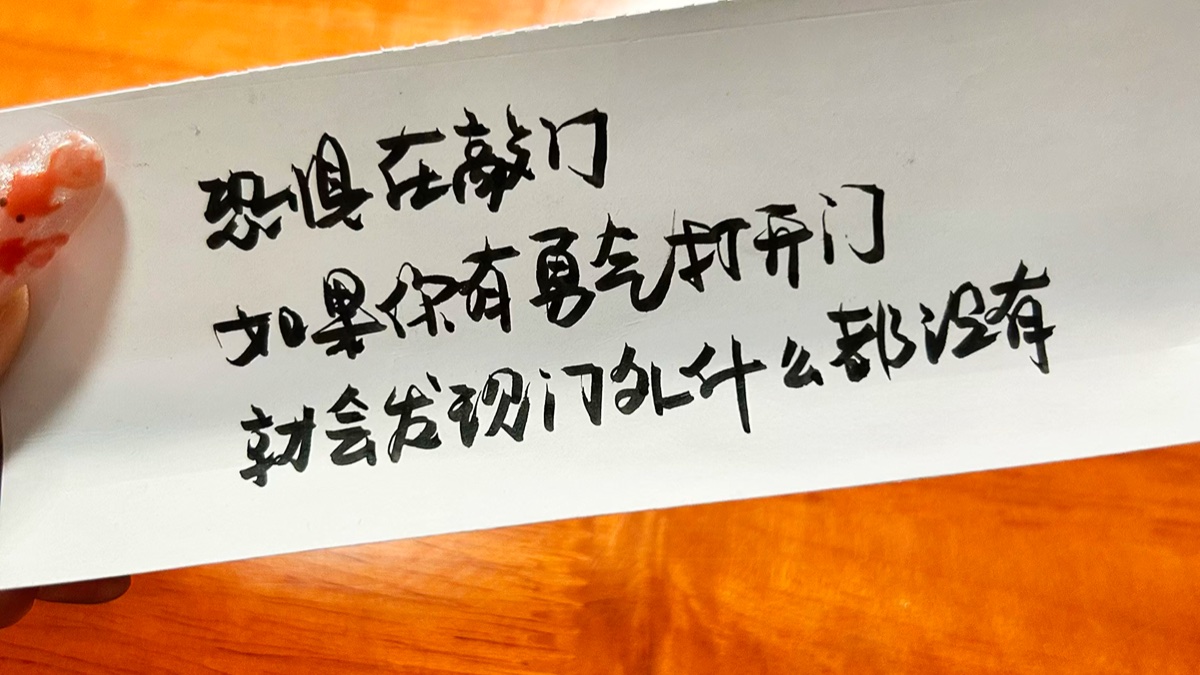 恐惧在敲门
如果你有勇气打开门
就会发现门外什么都没有